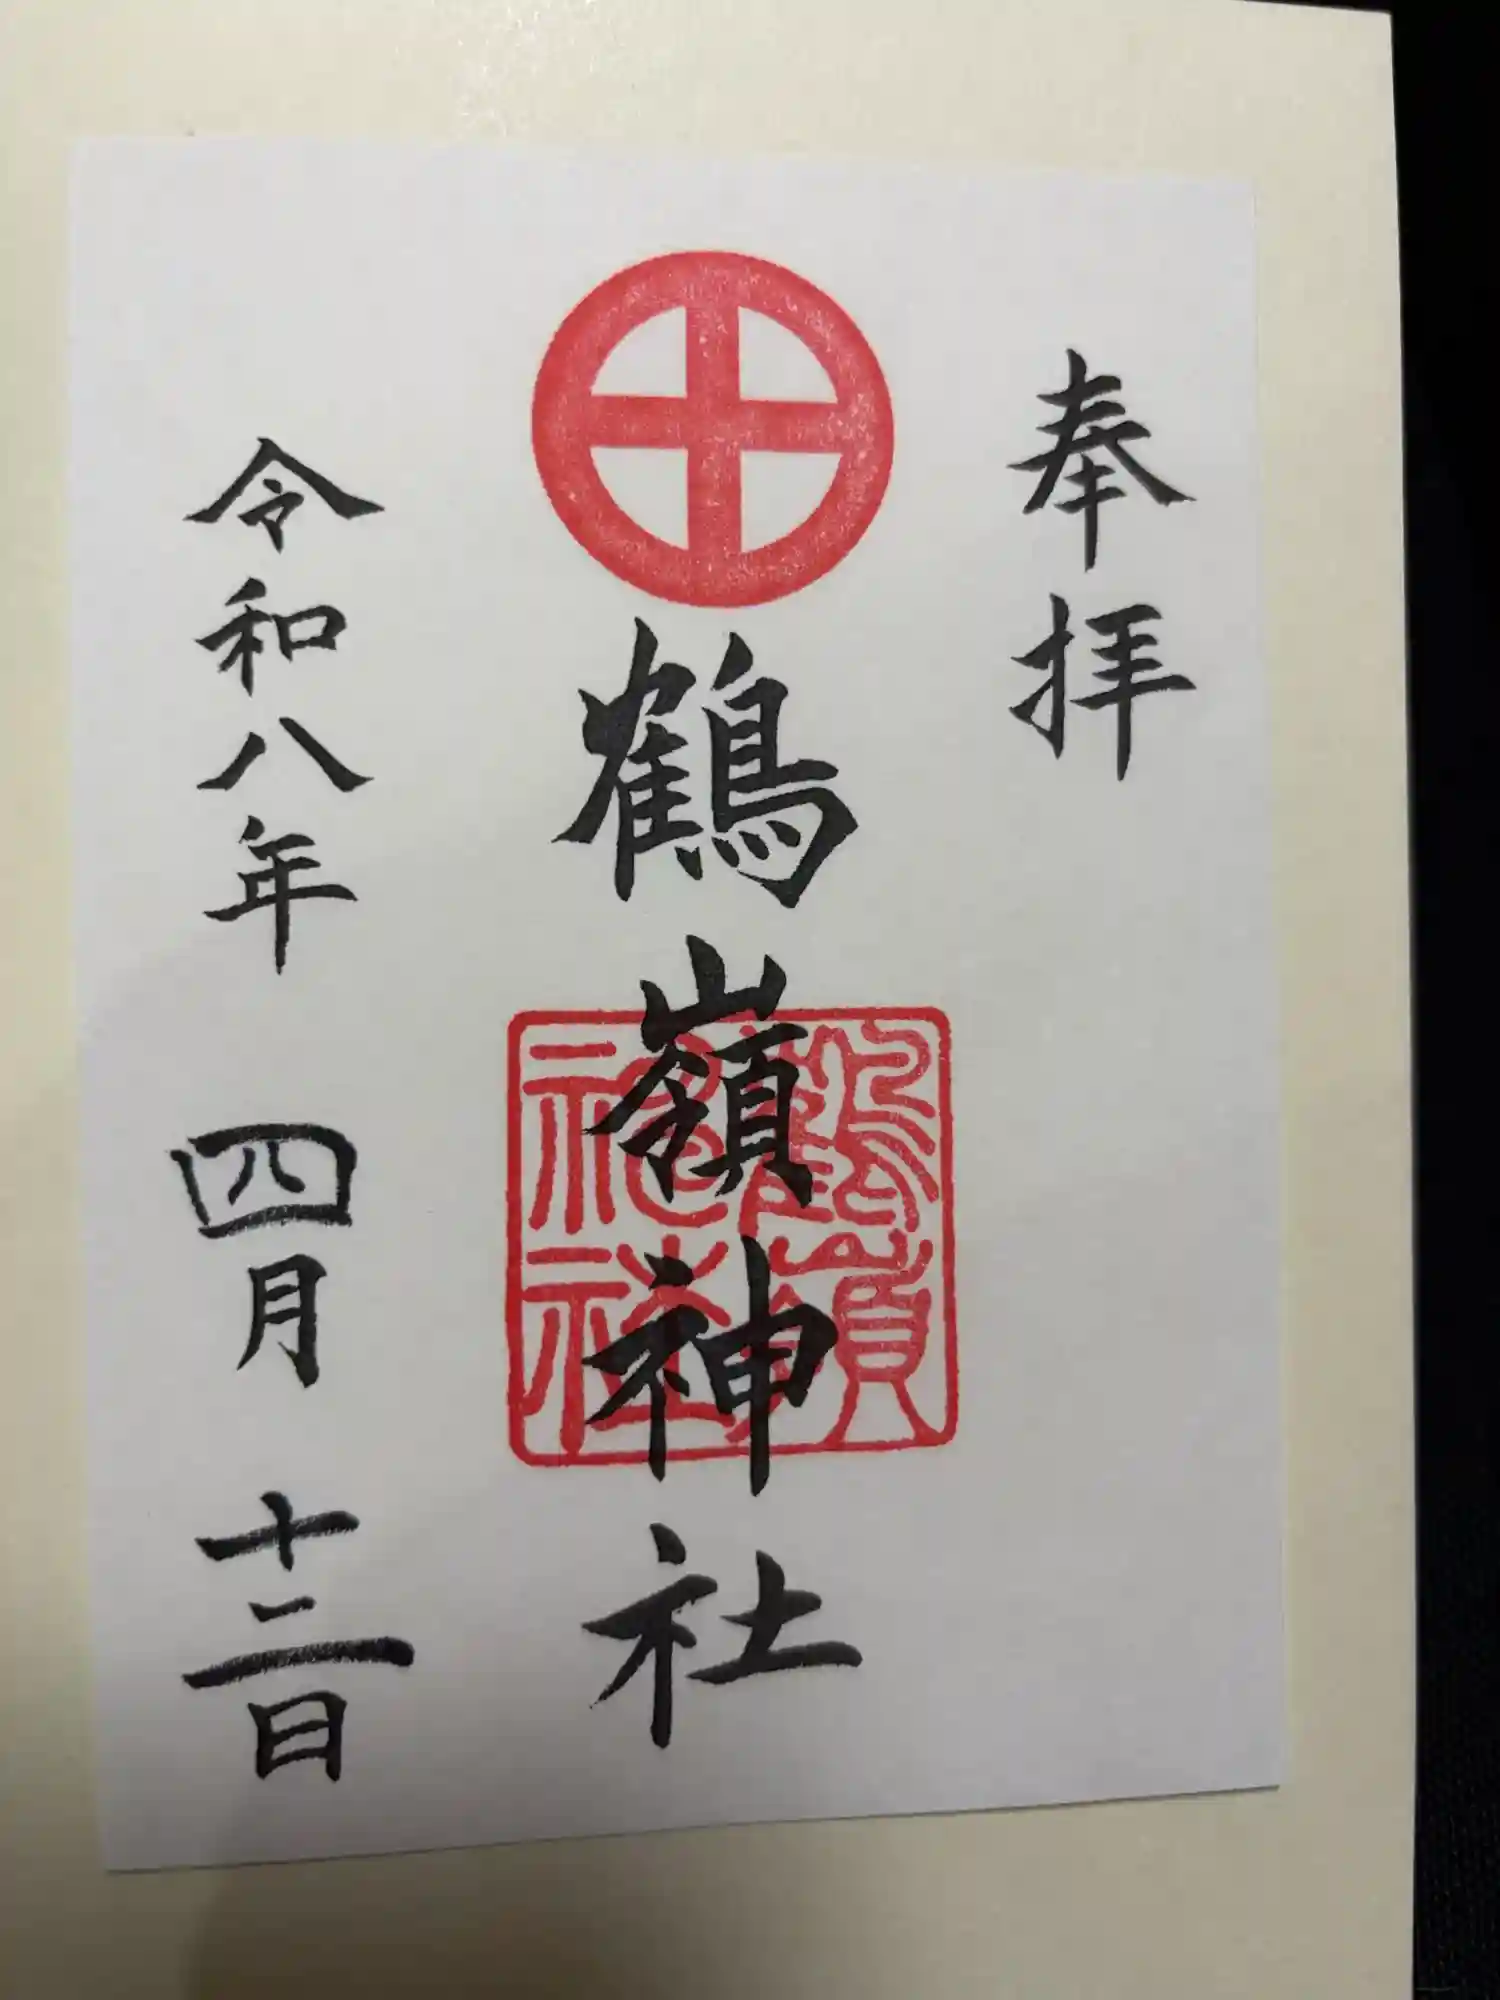 奉拝
鶴嶺神社
鶴嶺
神社
令和八年 四月 十二日